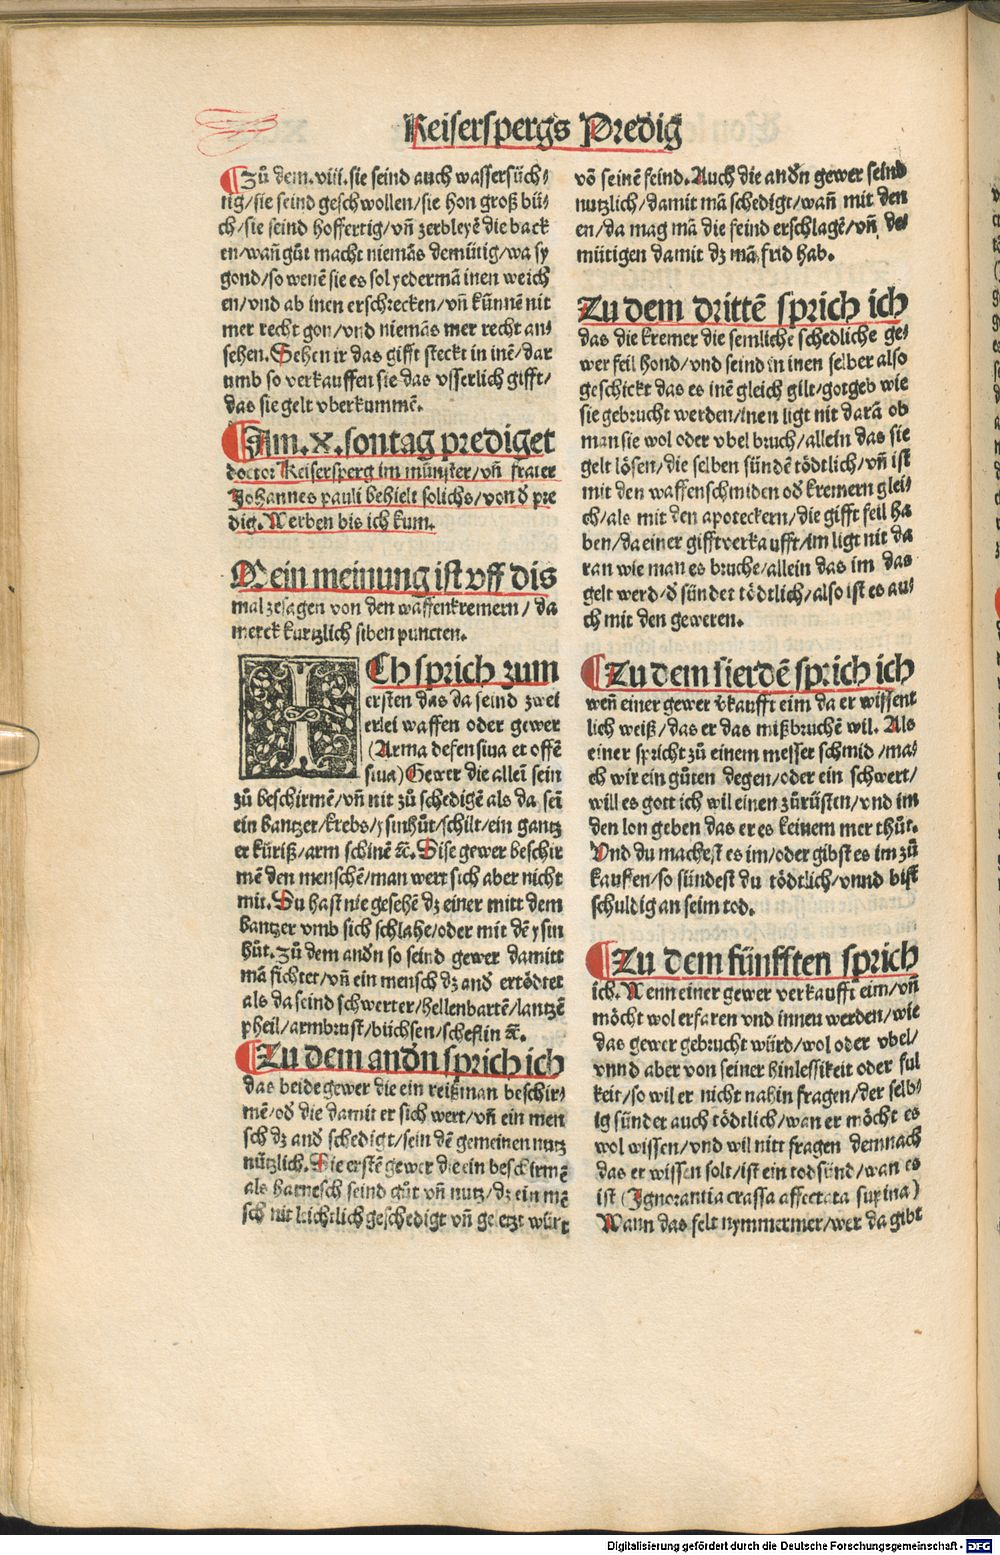 Keiserspergs Predig
Zů dem.viii.sie seind auch wassersüch⸗
tig/sie seind geschwollen/sie hon groß bü⸗
ch/sie seind hoffertig/vñ zerbleyẽ die back
en/wañ gůt macht niemãs demütig/wa sy
gond/so wenẽ sie es sol yedermã inen weich
en/vnd ab inen erschrecken/vñ künnẽ nit
mer recht gon/vnd niemãs mer recht an⸗
sehen. Sehen ir das gifft steckt in inẽ/dar
umb so verkauffen sie das vsserlich gifft/
das sie gelt vberkummẽ.
Am.X.sontag prediget
doctor Keisersperg im münster/vñ frater
Johannes pauli behielt solichs/von d̕ pre
dig. Werben bis ich kum.
Mein meinung ist vff dis
mal zesagen von den waffenkremern/ da
merck kurtzlich siben puncten.
ICh sprich zum
ersten das da seind zwei
erlei waffen oder gewer
(Arma defensiua et offẽ
siua) Gewer die alleĩ sein
zů beschirmẽ/vñ nit zů schedigẽ als da seĩ
ein bantzer/krebs/ysinhůt/schilt/ein gantz
er küriß/arm schinẽ ꝛc. Dise gewer beschir
mẽ den menschẽ/man wert sich aber nicht
mit. Du hast nie gesehẽ dz einer mitt dem
bantzer vmb sich schlahe/oder mit dẽ ysin
hůt. Zů dem and̕n so seind gewer damitt
mã fichtet/vñ ein mensch dz and̕ ertödtet
als da seind schwerter/hellenbartẽ/lantzẽ
pheil/armbrust/büchsen/scheflin ꝛc.
Zu dem and̕n sprich ich
das beide gewer die ein reißman beschir⸗
mẽ/od̕ die damit er sich wert/vñ ein men
sch dz and̕ schedigt/sein dẽ gemeinen nutz
nützlich. Die erstẽ gewer die ein beschirmẽ
als harnesch seind gůt vñ nutz/dz ein mẽ
sch nit lichtlich geschedigt vñ geletzt würt
võ seinẽ feind. Auch die and̕n gewer seind
nutzlich/damit mã schedigt/wañ mit den
en/da mag mã die feind erschlagẽ/vñ de
mütigen damit dz mã frid hab.
Zu dem drittẽ sprich ich
das die kremer die semliche schedliche ge⸗
wer feil hond/vnd seind in inen selber also
geschickt das es inẽ gleich gilt/gotgeb wie
sie gebrucht werden/inen ligt nit darã ob
man sie wol oder vbel bruch/allein das sie
gelt lösen/die selben sündẽ tödtlich/vñ ist
mit den waffenschmiden od̕ kremern glei⸗
ch/als mit den apoteckern/die gifft feil ha
ben/da einer gifft verkaufft/im ligt nit da
ran wie man es bruche/allein das im das
gelt werd/d̕ sündet tödtlich/also ist es au⸗
ch mit den geweren.
Zu dem fierdẽ sprich ich
weñ einer gewer v̕kaufft eim da er wissent
lich weiß/das er das mißbruchẽ wil. Als
einer spricht zů einem messer schmid/ma⸗
ch wir ein gůten degen/oder ein schwert/
will es gott ich wil einen zůrüsten/vnd im
den lon geben das er es keinem mer thůt.
Vnd du machest es im/oder gibst es im zů
kauffen/so sündest du tödtlich/vnnd bist
schuldig an seim tod.
Zu dem fünfften sprich
ich. Wenn einer gewer verkaufft eim/vñ
möcht wol erfaren vnd innen werden/wie
das gewer gebrucht würd/wol oder vbel/
vnnd aber von seiner hinlessikeit oder ful
keit/so wil er nicht nahin fragen/der selb⸗
ig sündet auch tödtlich/wan er möcht es
wol wissen/vnd wil nitt fragen demnach
das er wissen solt/ist ein todsünd/wan es
ist (Ignorantia crassa affectata supina)
Wann das felt nymmermer/wer da gibt
Digitalisierung gefördert durch die Deutsche Forschungsgemeinschaft - DFG